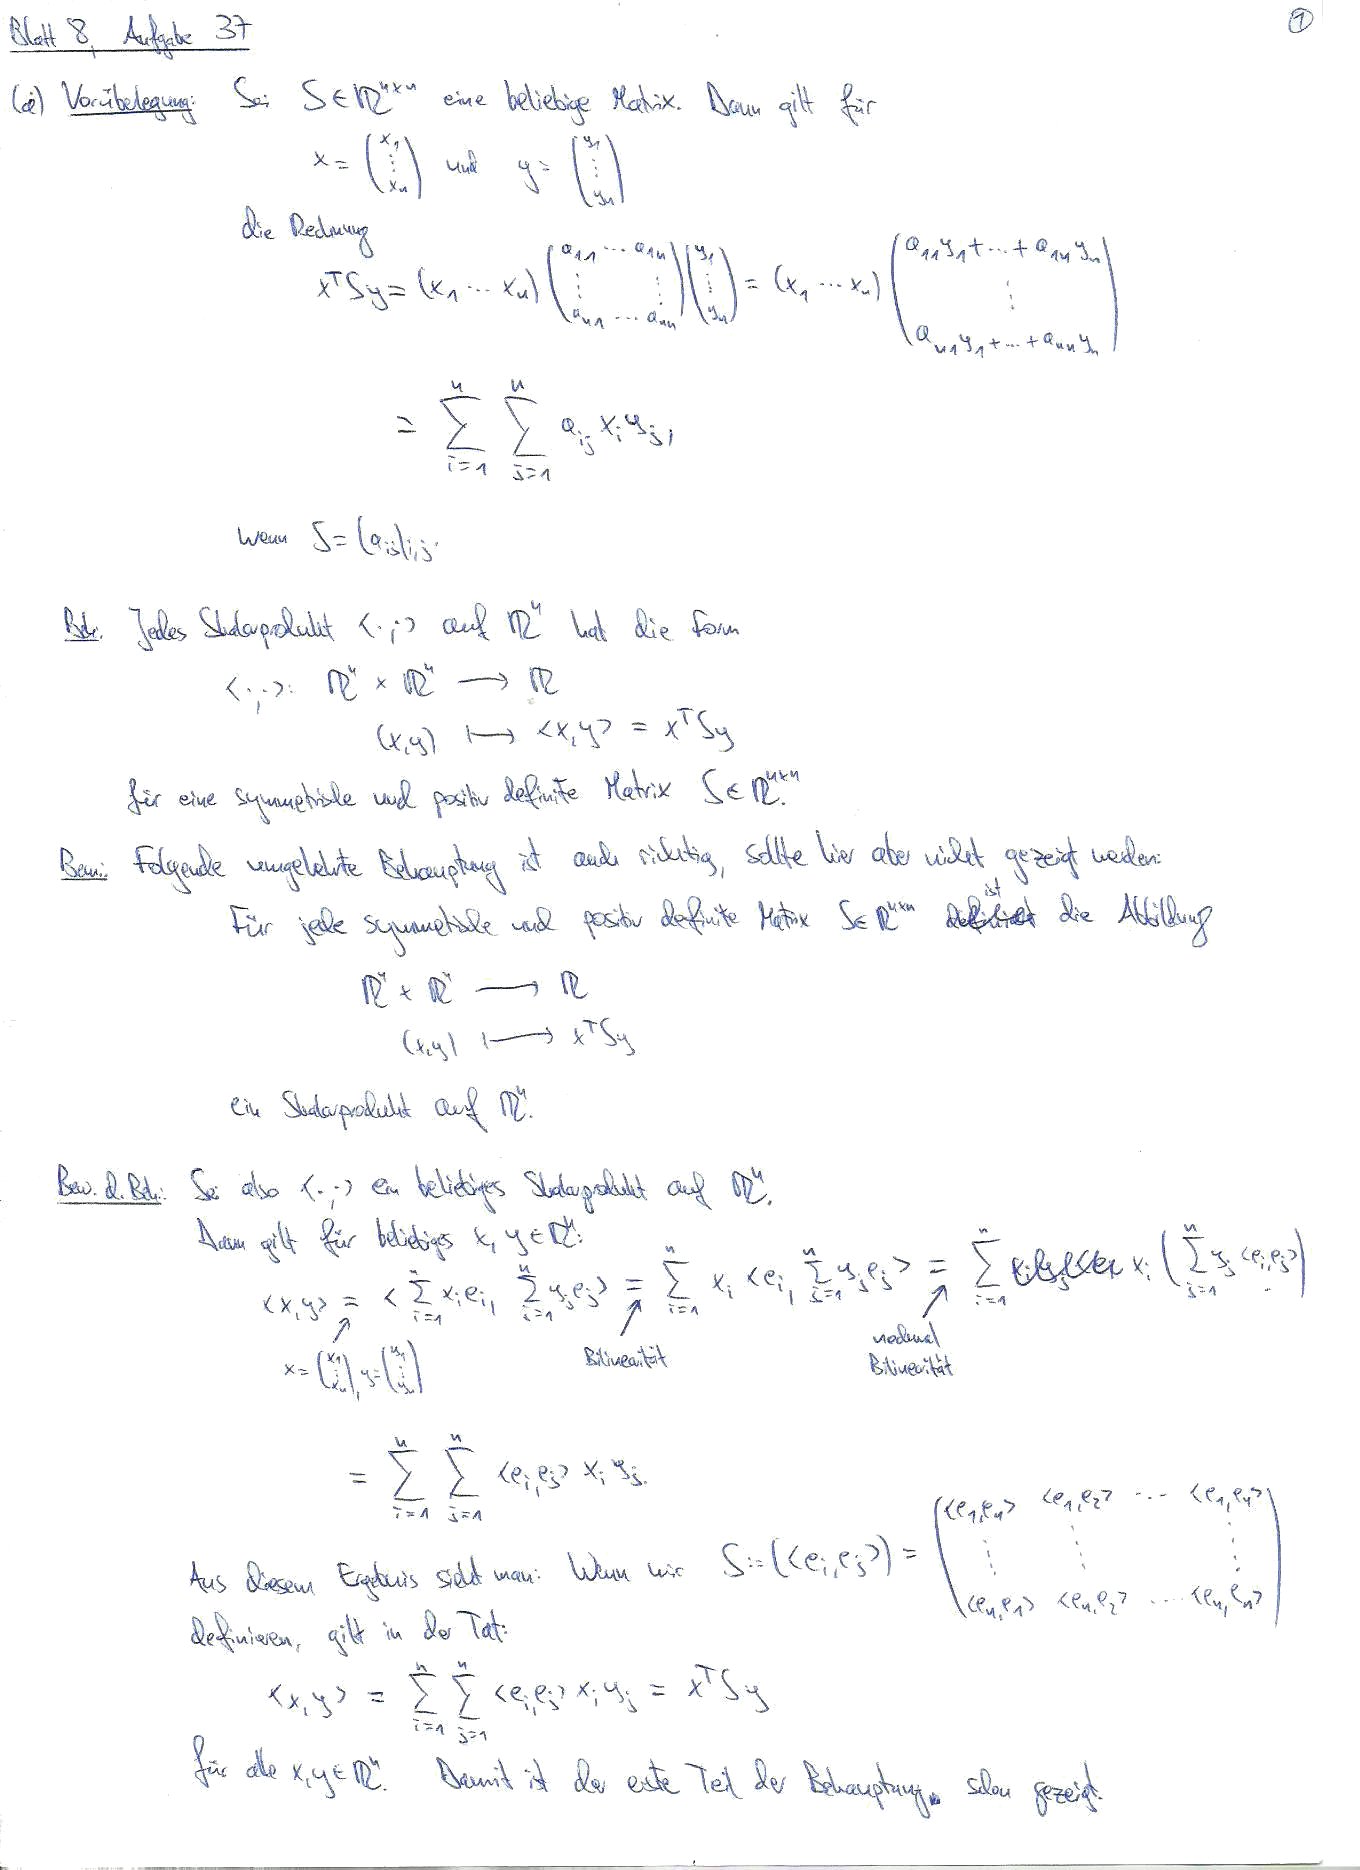 Blatt 8, Aufgabe 37
1
(a) Vorüberlegung: Sei S ∈ ℝ^{n×n} eine beliebige Matrix. Dann gilt für
x = (x_1 ⋮ x_n) und y = (y_1 ⋮ y_n)
die Rechnung
x^T S y = (x_1 ⋯ x_n) (a_{11} ⋯ a_{1n} ⋮ ⋮ a_{n1} ⋯ a_{nn}) (y_1 ⋮ y_n) = (x_1 ⋯ x_n) (a_{11}y_1 + ⋯ + a_{1n}y_n ⋮ a_{n1}y_1 + ⋯ + a_{nn}y_n)
= ∑_{i=1}^n ∑_{j=1}^n a_{ij} x_i y_j,
wenn S = (a_{ij})_{i,j}.
Beh. Jedes Skalarprodukt <·,·> auf ℝ^n hat die Form
<·,·>: ℝ^n × ℝ^n ⟶ ℝ
(x,y) ⟼ <x,y> = x^T S y
für eine symmetrische und positiv definite Matrix S ∈ ℝ^{n×n}.
Bem.: Folgende umgekehrte Behauptung ist auch richtig, sollte hier aber nicht gezeigt werden:
Für jede symmetrische und positiv definite Matrix S ∈ ℝ^{n×n} ist die Abbildung
ℝ^n × ℝ^n ⟶ ℝ
(x,y) ⟼ x^T S y
ein Skalarprodukt auf ℝ^n.
Bew. d. Beh.: Sei also <·,·> ein beliebiges Skalarprodukt auf ℝ^n.
Dann gilt für beliebiges x, y ∈ ℝ^n:
<x,y> = <∑_{i=1}^n x_i e_i, ∑_{i=1}^n y_j e_j> = ∑_{i=1}^n x_i <e_i, ∑_{j=1}^n y_j e_j> = ∑_{i=1}^n x_i (∑_{j=1}^n y_j <e_i,e_j>)
x = (x_1 ⋮ x_n), y = (y_1 ⋮ y_n)
Bilinearität
nochmal
Bilinearität
= ∑_{i=1}^n ∑_{j=1}^n <e_i,e_j> x_i y_j.
Aus diesem Ergebnis sieht man: Wenn wir S := (<e_i,e_j>) = (<e_1,e_1> <e_1,e_2> ⋯ <e_1,e_n> ⋮ ⋮ ⋮ <e_n,e_1> <e_n,e_2> ⋯ <e_n,e_n>)
definieren, gilt in der Tat:
<x,y> = ∑_{i=1}^n ∑_{j=1}^n <e_i,e_j> x_i y_j = x^T S y
für alle x,y ∈ ℝ^n. Damit ist der erste Teil der Behauptung schon gezeigt.